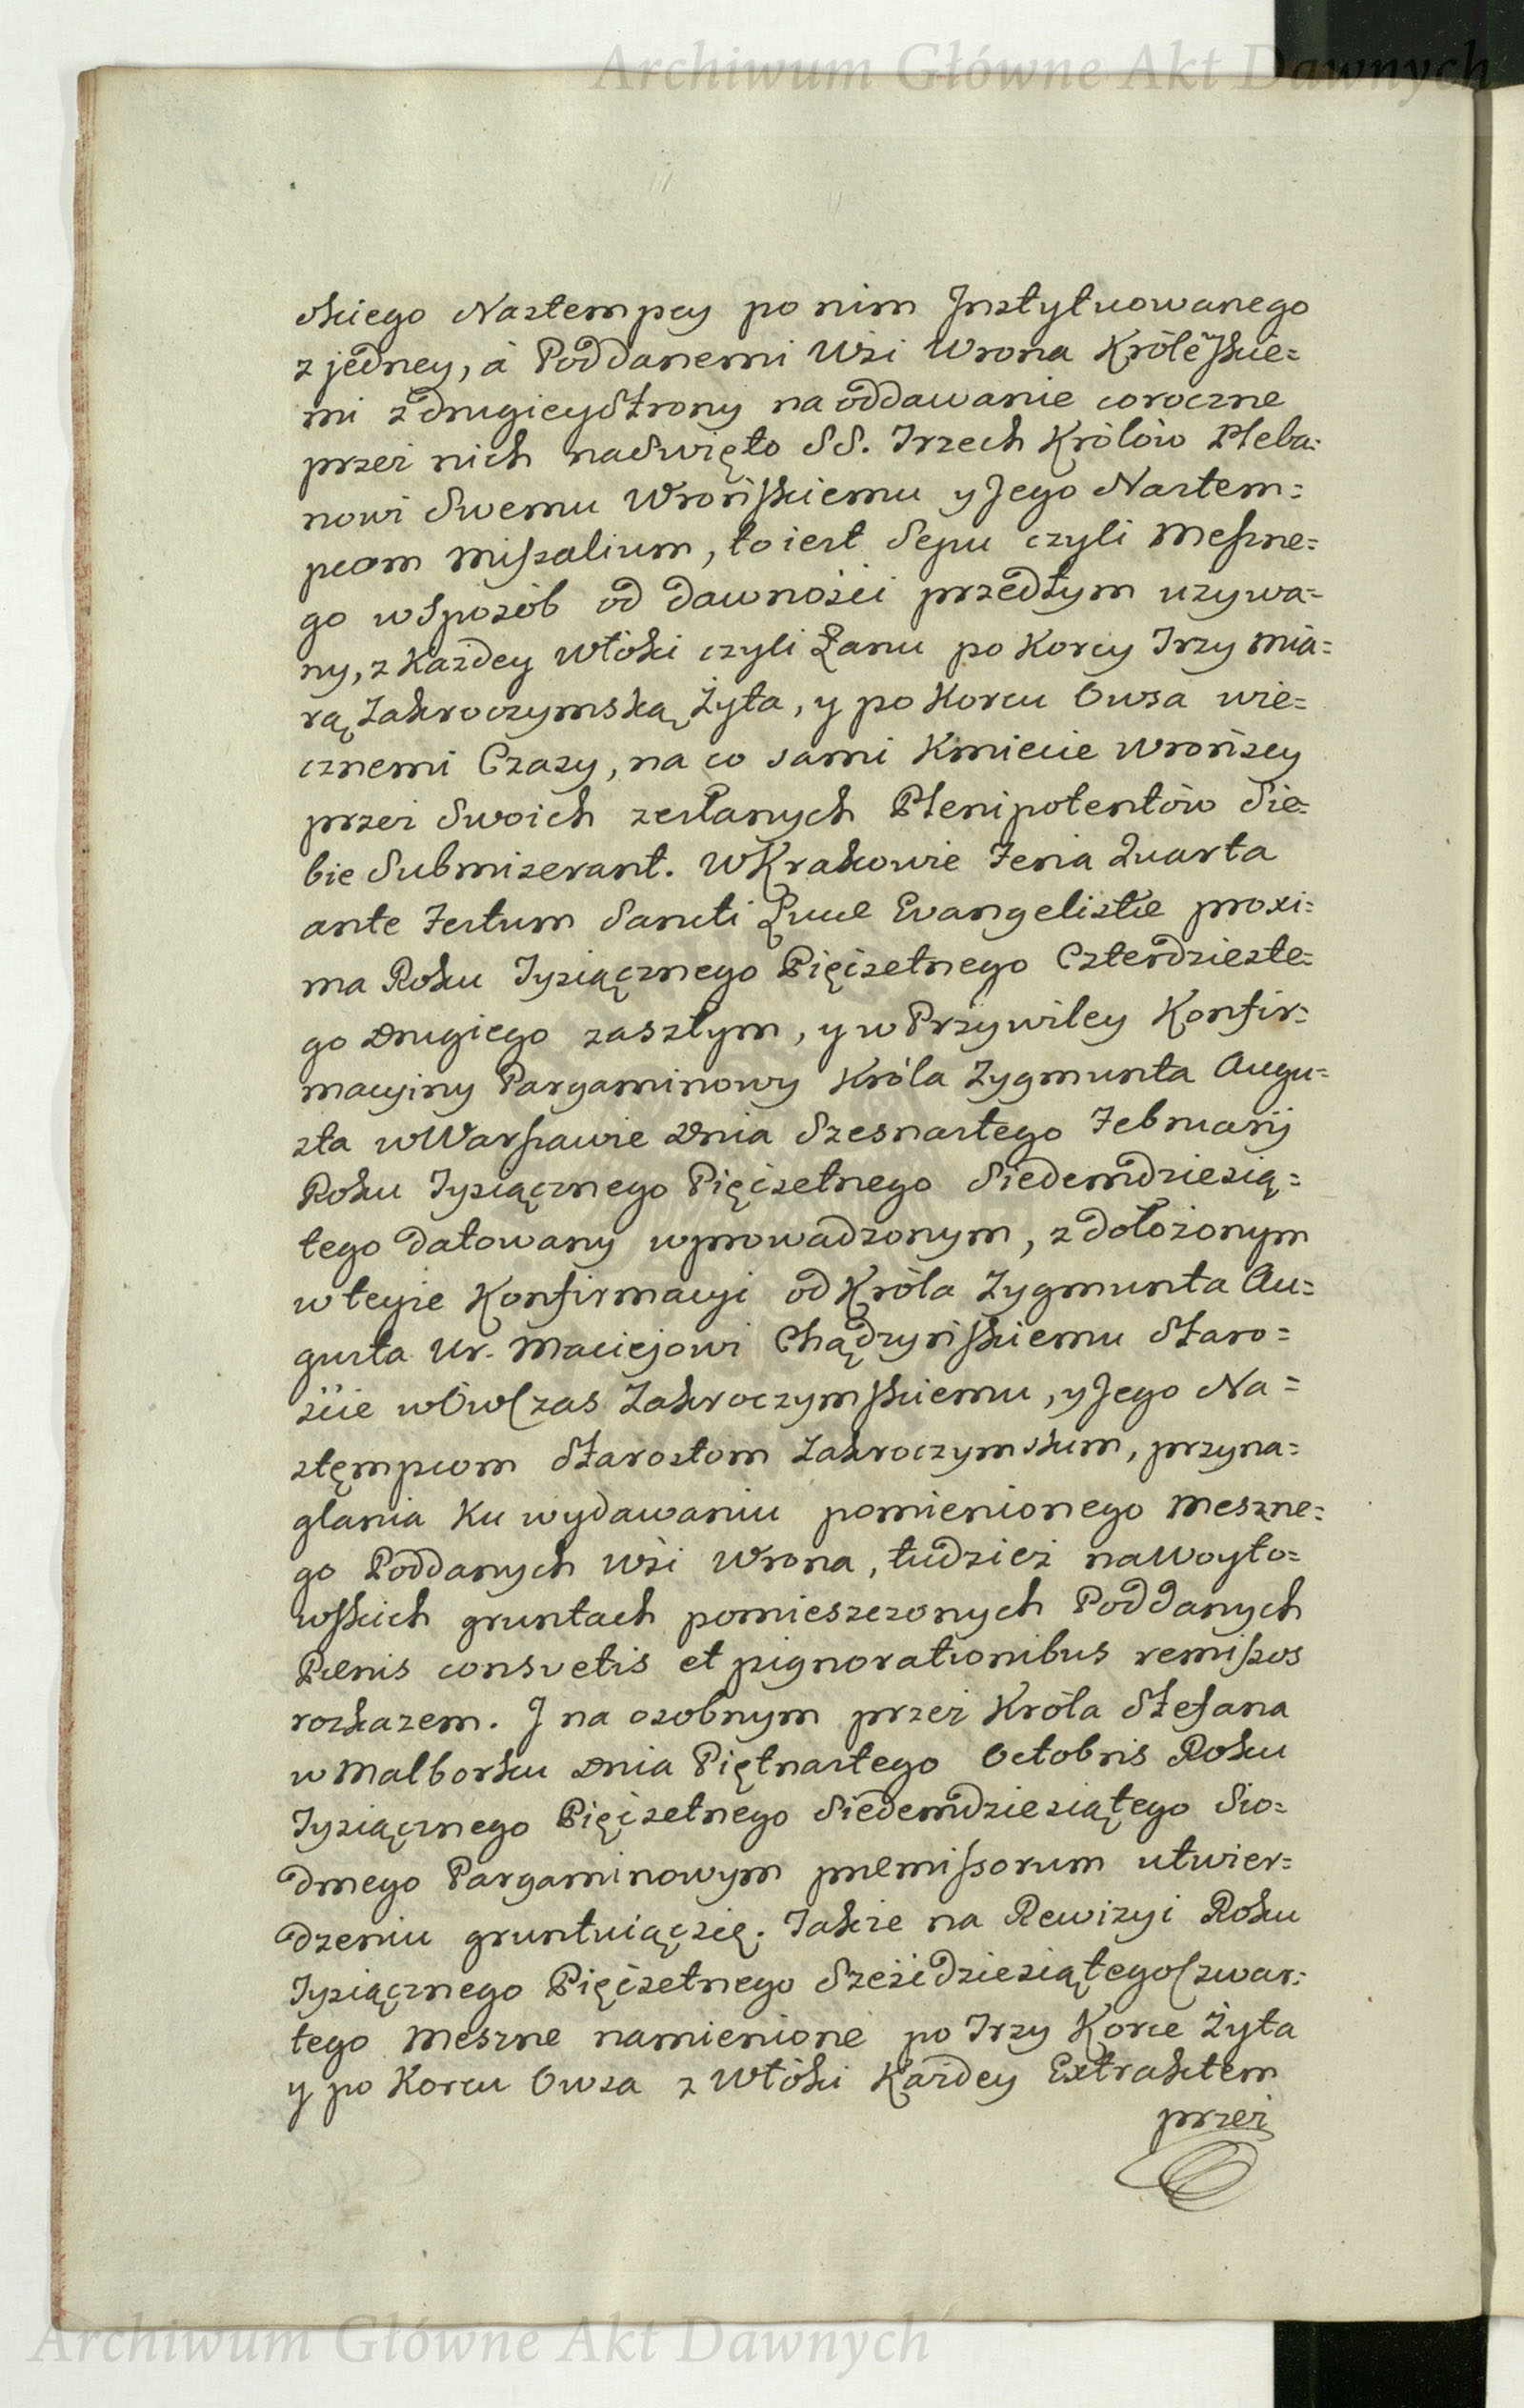 Archiwum Główne Akt Dawnych
skiego Nastempcy po nim Jnstytuowanego
z jedney, á Poddanemi Wsi Wrona Królewskie=
mi z drugiey Strony na oddawanie coroczne
przez nich na Swięto SS. Trzech Królów Pleba=
nowi Swemu Wrońskiemu y Jego Nastem=
pcom Missalium, to iest Sepu czyli Meszne=
go w Sposób od dawności przedtym uzywa=
ny, z Każdey Włóki czyli Łanu po Korcy Trzy mia=
rą Zakroczymską Żyta, y po Korcu Owsa wie=
cznemi Czasy, na co sami Kmiecie Wrońscy
przez Swoich zesłanych Plenipotentów Sie=
bie Submiserant. W Krakowie Feria Quarta
ante Festum Sancti Lucæ Evangelistæ proxi=
ma Roku Tysiącznego Pięćsetnego Czterdzieste=
go Drugiego zaszłym, y w Przywiley Konfir=
macyiny Pargaminowy Króla Zygmunta Augu=
sta w Warszawie Dnia Szesnastego Februarij
Roku Tysiącznego Pięćsetnego Siedemdziesią=
tego datowany wprowadzonym, z dołożonym
w teyże Konfirmacyi od Króla Zygmunta Au=
gusta Ur. Maciejowi Chądzyńskiemu Staro=
ście wówczas Zakroczymskiemu, y Jego Na=
stęmpcom Starostom Zakroczymskim, przyna=
glania Ku wydawaniu pomienionego Meszne=
go Poddanych Wsi Wrona, tudzież na Woyto=
wskich gruntach pomieszczonych Poddanych
Pœnis consvetis et pignorationibus remissos
rozkazem. J na osobnym przez Króla Stefana
w Malborku Dnia Piętnastego Octobris Roku
Tysiącznego Pięćsetnego Siedemdziesiątego Sio=
dmego Pargaminowym præmissorum utwier=
dzeniu gruntuiąc się. Także na Rewizyi Roku
Tysiącznego Pięćsetnego Sześćdziesiątego Czwar=
tego Meszne namienione po Trzy Korce Żyta
y po Korcu Owsa z Włóki Każdey Extraktem
przez
Archiwum Główne Akt Dawnych